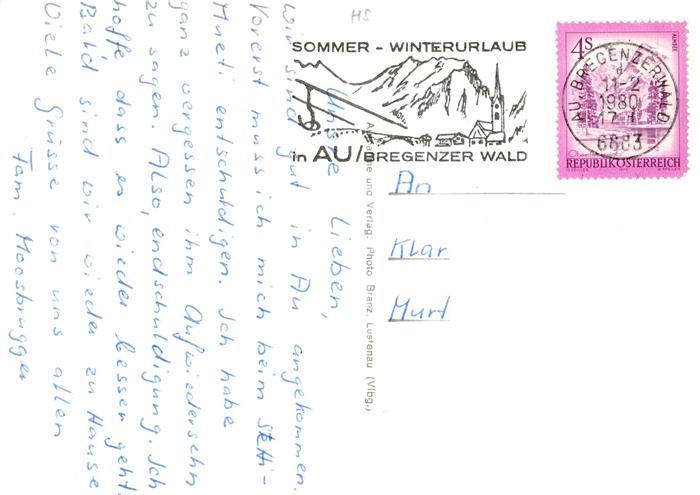 HS
SOMMER - WINTERURLAUB
in AU/BREGENZER WALD
4S
ALMSEE
REPUBLIK ÖSTERREICH
AU, BREGENZERWALD
11-2
1980
6883
Unsere Lieben,
wir sind gut in Au angekommen.
Vorerst muss ich mich beim Stetti-
Mueti entschuldigen. Ich habe
ganz vergessen ihm Aufwiedersehn
zu sagen. Also, endschuldigung. Ich
hoffe dass es wieder besser geht.
Bald sind wir wieder zu Hause
Viele Grüsse von uns allen
Fam. Moosbrugger
Aufnahme und Verlag: Photo Branz, Lustenau (Vlbg.)
An
Klar
Murt